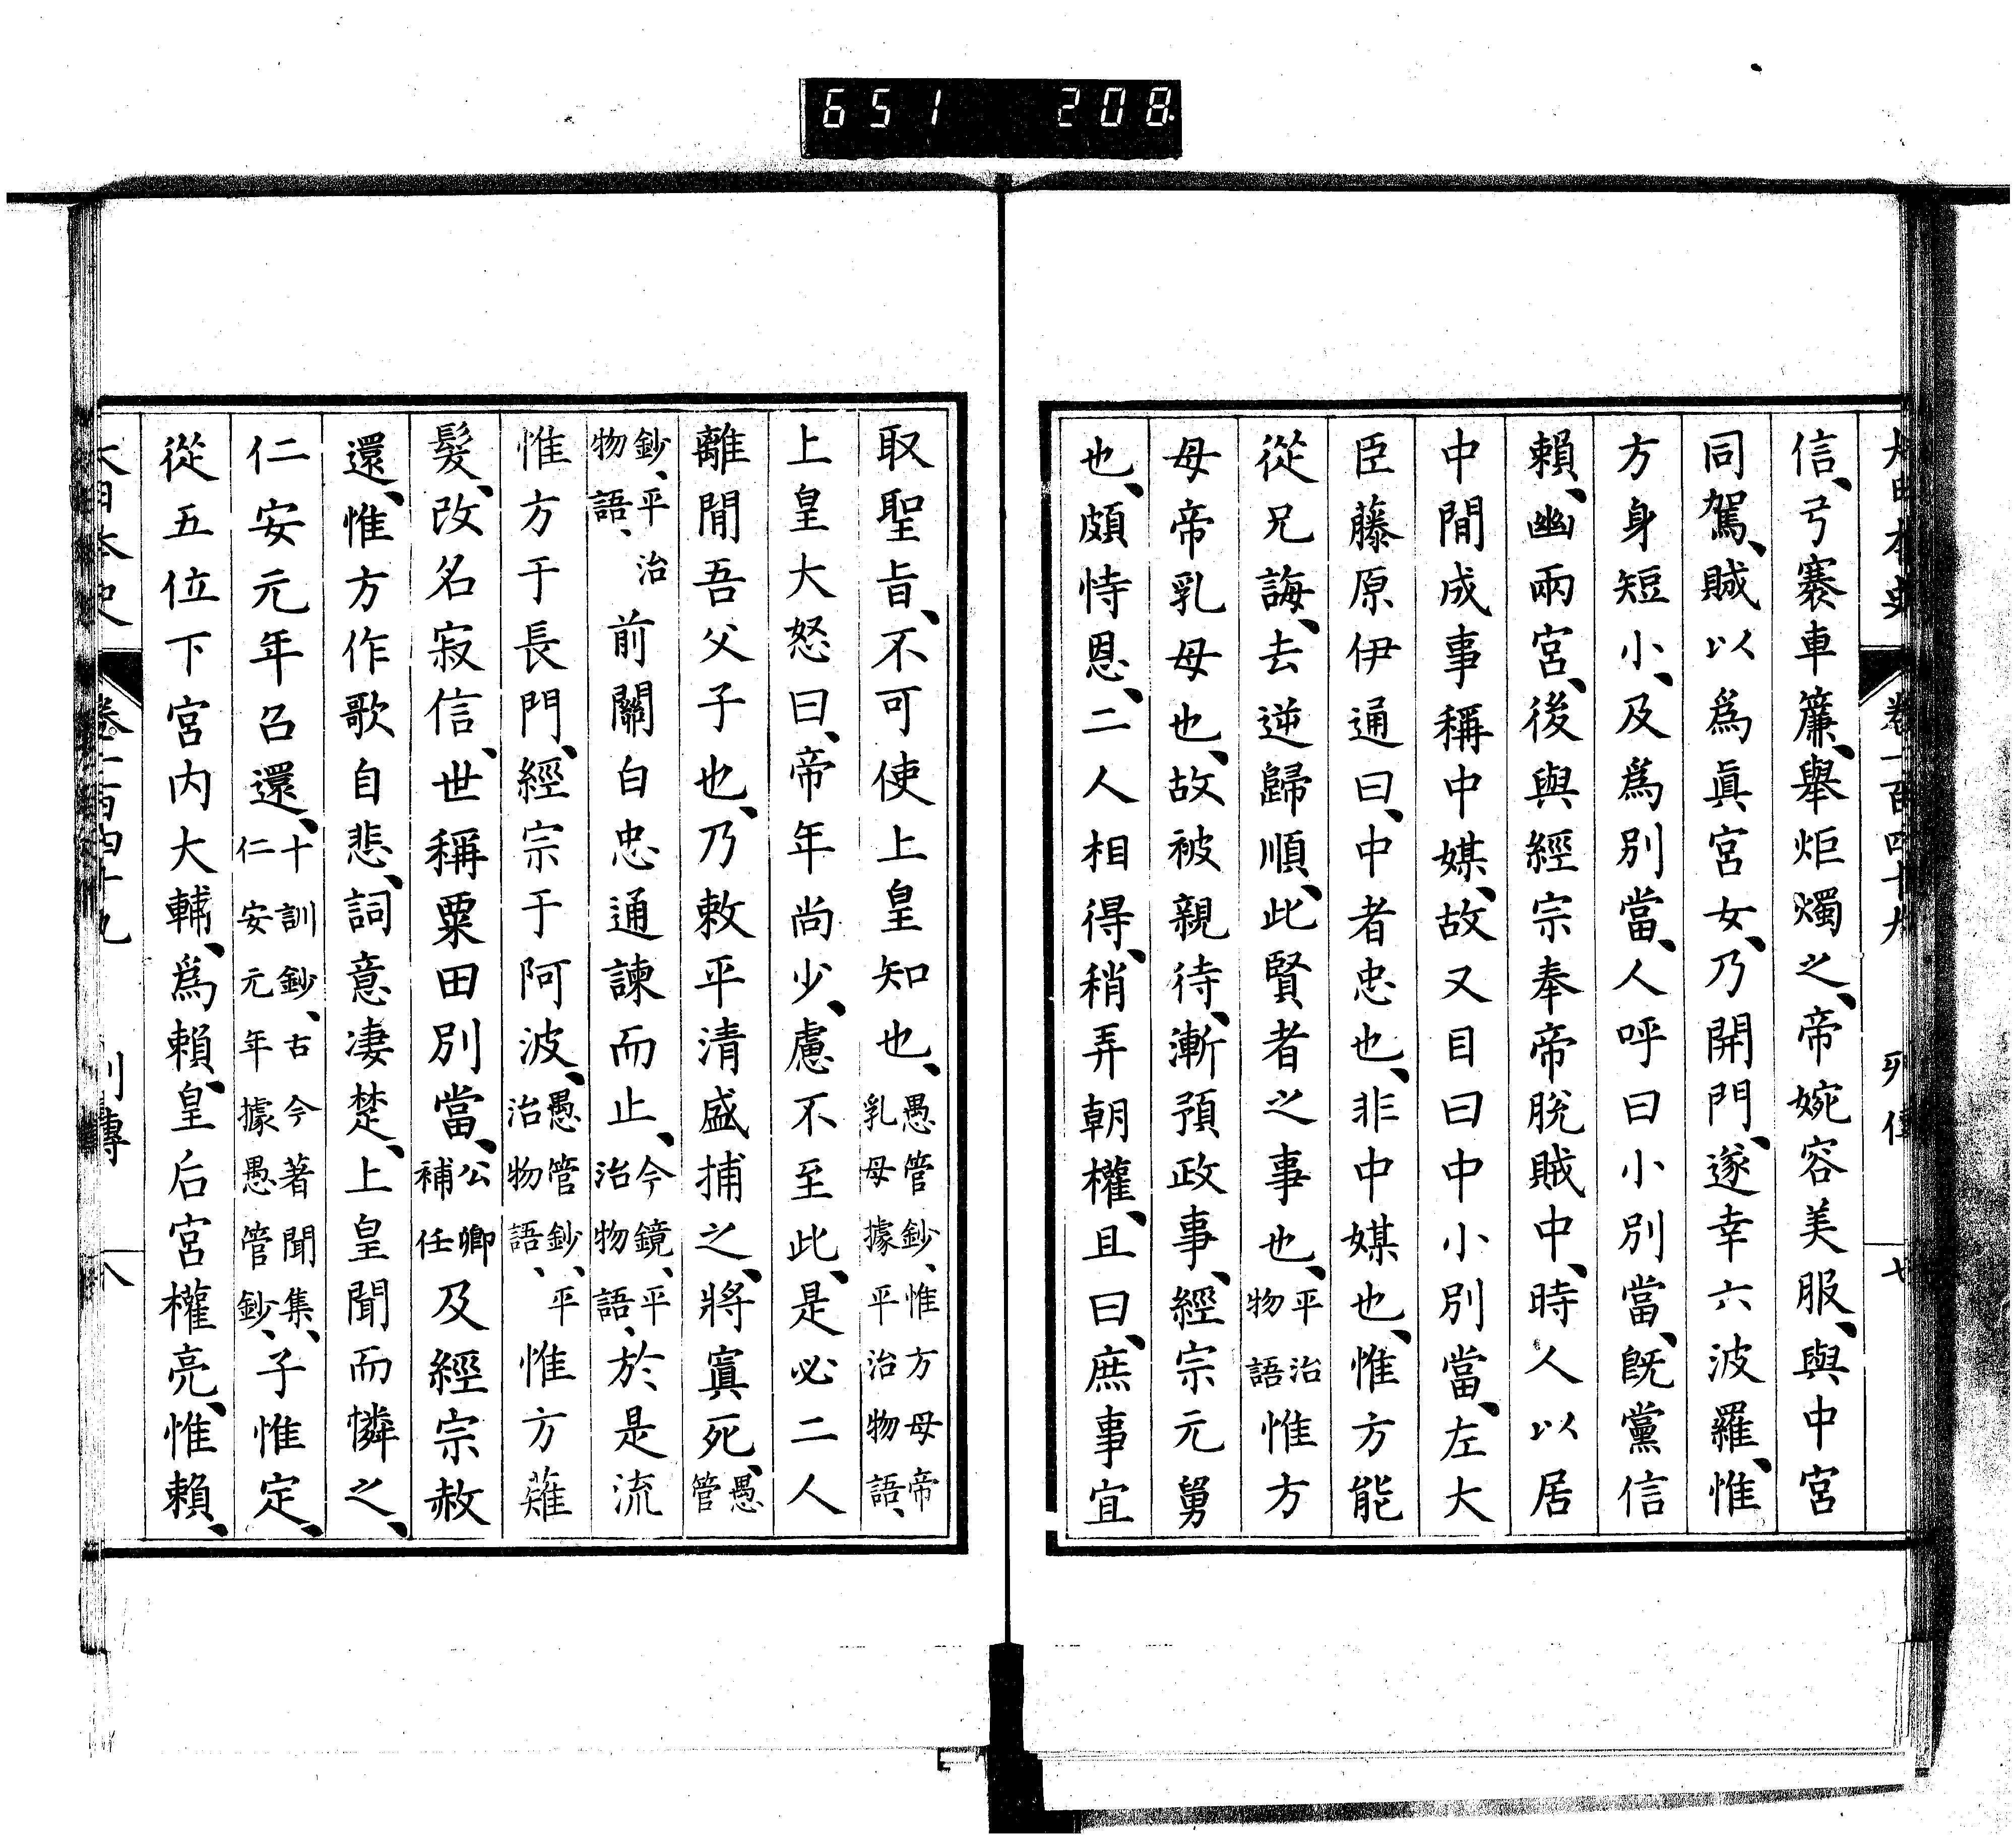 651 208
大日本史 卷一百四十九 列傳 七
信、弓褰車簾、舉炬燭之、帝婉容美服、與中宮
同駕、賊以爲眞宮女、乃開門、遂幸六波羅、惟
方身短小、及爲別當、人呼曰小別當、既黨信
賴、幽兩宮、後與經宗奉帝脫賊中、時人以居
中閒成事稱中媒、故又目曰中小別當、左大
臣藤原伊通曰、中者忠也、非中媒也、惟方能
從兄誨、去逆歸順、此賢者之事也、平治物語惟方
母帝乳母也、故被親待、漸預政事、經宗元舅
也、頗恃恩、二人相得、稍弄朝權、且曰、庶事宜
取聖旨、不可使上皇知也、愚管鈔、惟方母帝乳母據平治物語、
上皇大怒曰、帝年尚少、慮不至此、是必二人
離閒吾父子也、乃敕平清盛捕之、將寘死、愚管
鈔、平治物語、前關白忠通諫而止、今鏡、平治物語、於是流
惟方于長門、經宗于阿波、愚管鈔、平治物語、惟方薙
髮、改名寂信、世稱粟田別當、公卿補任及經宗赦
還、惟方作歌自悲、詞意凄楚、上皇聞而憐之、
仁安元年召還、十訓鈔、古今著聞集、仁安元年據愚管鈔、子惟定、
從五位下宮內大輔、爲賴、皇后宮權亮、惟賴、
大日本史 卷一百四十九 列傳 八